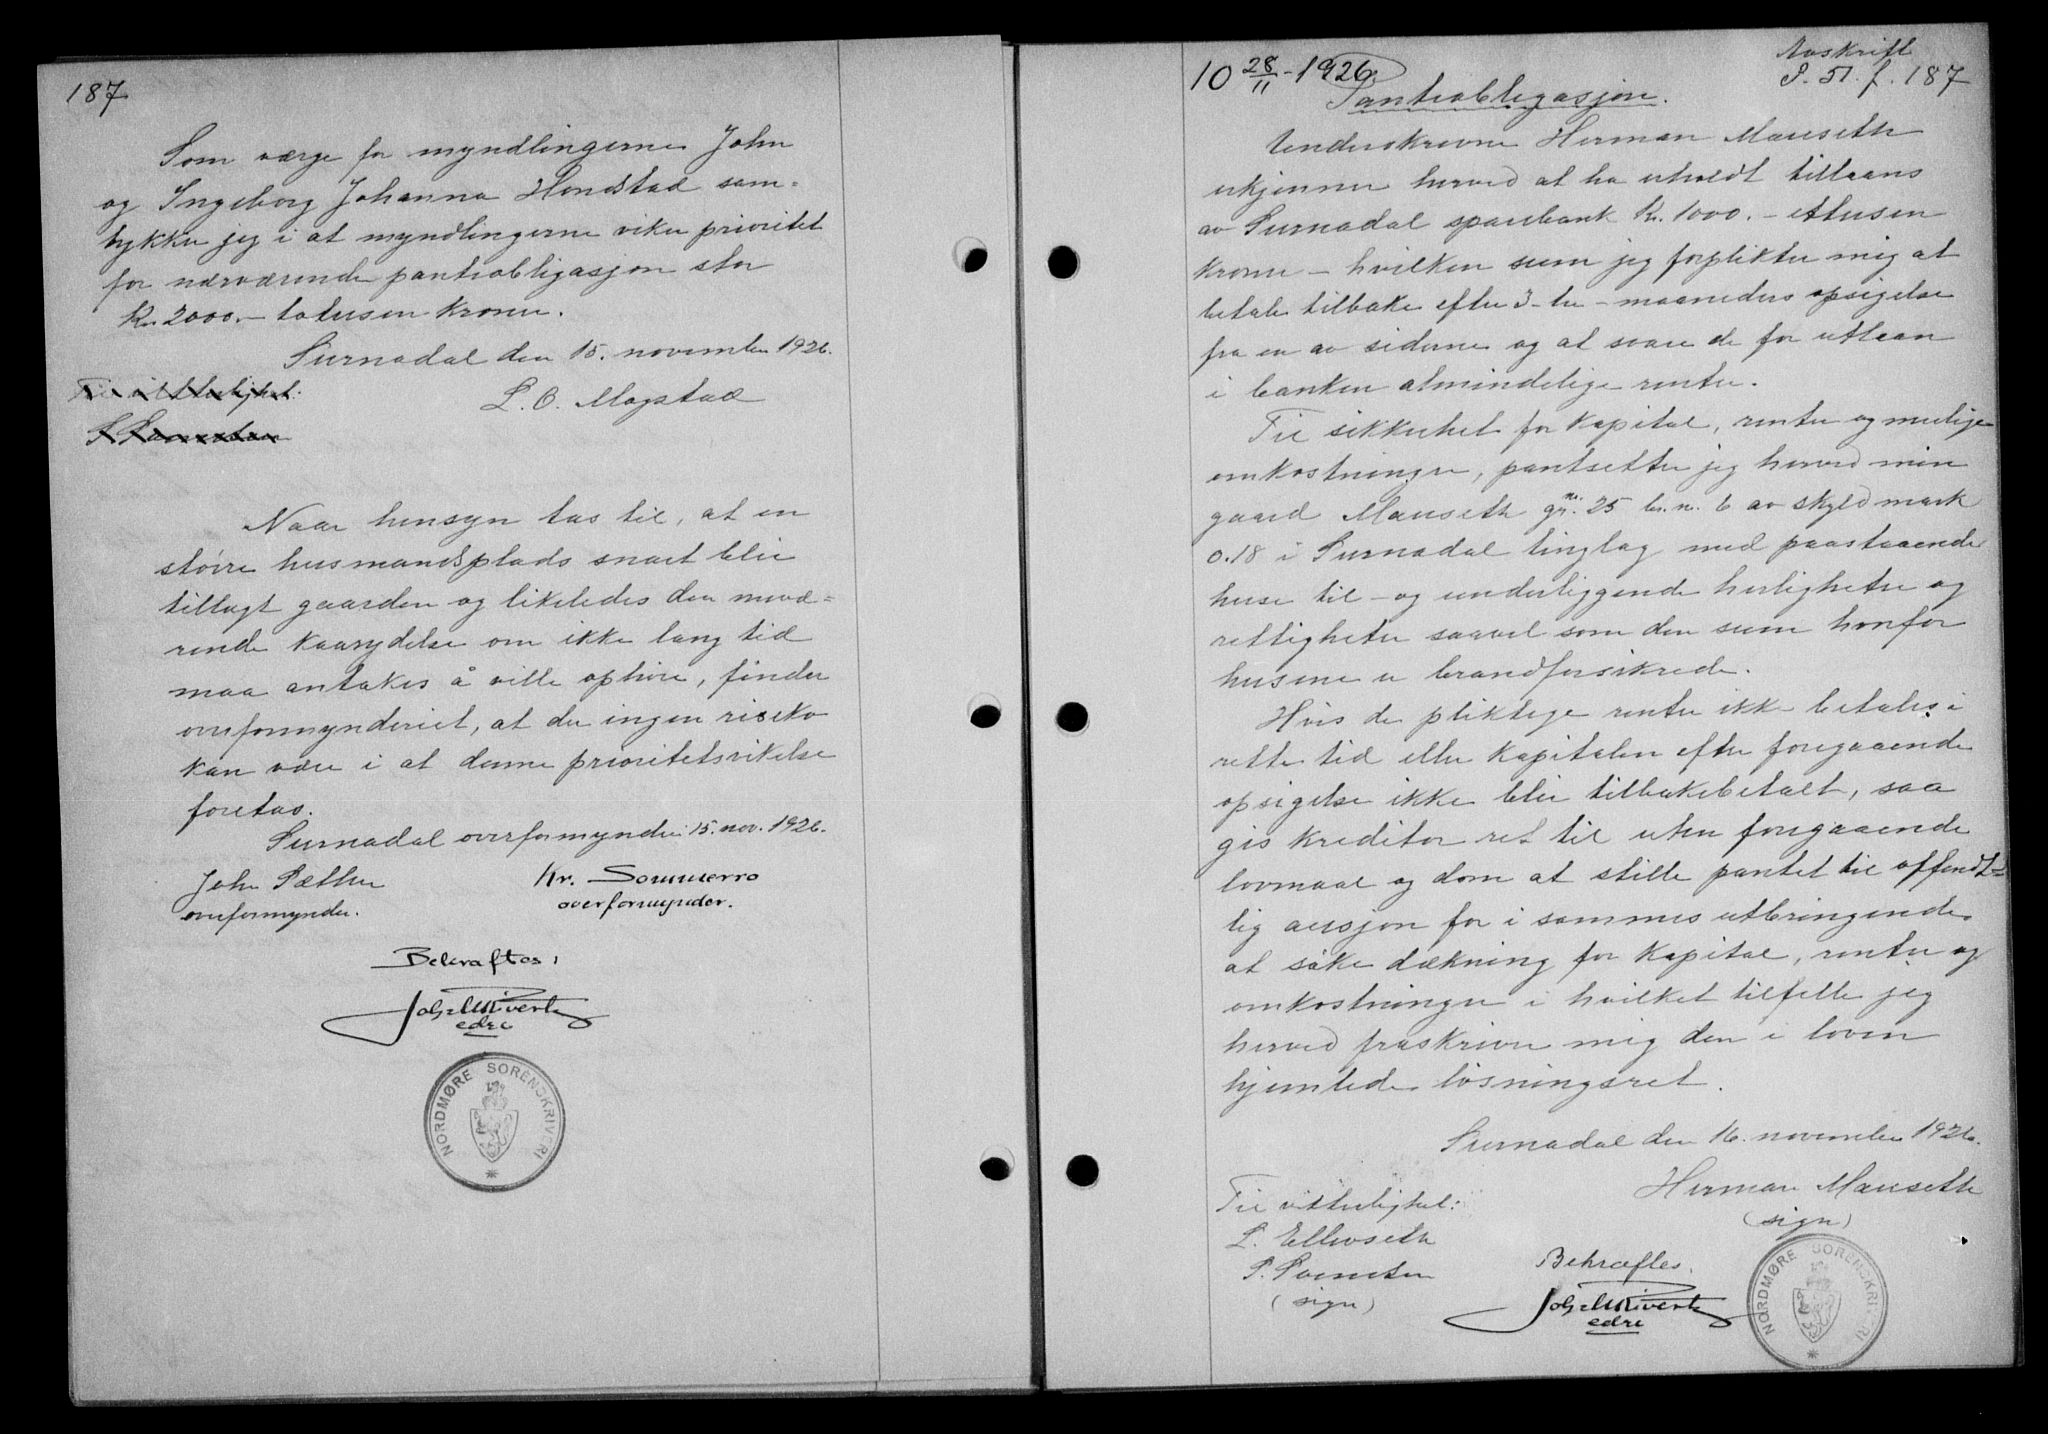 187
Som værge for myndlingerne John
og Ingeborg Johanna Hondstad sam-
tykker jeg i at myndlingerne viker prioritet
for nærværende pantobligasjon stor
Kr. 2000.- totusen kroner.
Surnadal den 15. november 1926.
Til vitterlighet:
L. O. Magstad
Naar hensyn tas til, at en
større husmandsplads snart blir
tillagt gaarden og likeledes den nuvæ-
rende kaarydelse om ikke lang tid
maa antakes å ville ophøre, finder
overformynderiet, at der ingen risiko
kan være i at denne prioritetsvikelse
foretas.
Surnadal overformynderi 15. nov. 1926.
John Sæther
overformynder.
Kr. Sommerro
overformynder.
Bekræftes,
edre
NORDMØRE SORENSKRIVERI
Avskrift
10 28/11-1926.
P. 51. f. 187
Pantobligasjon.
Underskrevne Herman Mauseth
erkjenner herved at ha erholdt tillaans
av Surnadal sparebank Kr. 1000.- ettusen
kroner - hvilken sum jeg forplikter mig at
betale tilbake efter 3-tre-maaneders opsigelse
fra en av siderne og at svare de for utlaan
i banken almindelige renter.
Til sikkerhet for kapital, renter og mulige
omkostninger, pantsetter jeg herved min
gaard Mauseth gr.nr. 25 br.n. 6 av skyld mark
0.18 i Surnadal tinglag med paastaaende
huse til- og underliggende herligheter og
rettigheter saavel som den sum hvorfor
husene er brandforsikrede.
Hvis de pliktige renter ikke betales i
rette tid eller kapitalen efter foregaaende
opsigelse ikke blir tilbakebetalt, saa
gis kreditor ret til uten foregaaende
lovmaal og dom at stille pantet til offendt-
lig auksjon for i sammes utbringende
at søke dækning for kapital, renter og
omkostninger i hvilket tilfelle jeg
herved fraskriver mig den i loven
hjemlede løsningsret.
Surnadal den 16. november 1926.
Herman Mauseth
(sign)
Til vitterlighet:
L. Ellevseth
P. Svinsten
(sign)
Bekræftes.
edre
NORDMØRE SORENSKRIVERI